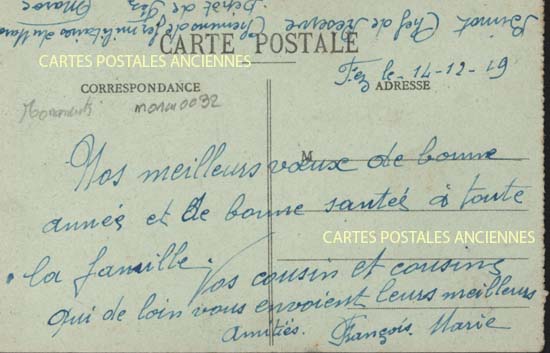 Birnot Chef de Réserve
Chemins de fer militaire du Maroc
Dépôt de Fez
Maroc
CARTE POSTALE
CARTES POSTALES ANCIENNES
Fez le 14-12-19
CORRESPONDANCE
ADRESSE
Monuments
monu0032
M
Nos meilleurs vœux de bonne
année et de bonne santée à toute
CARTES POSTALES ANCIENNES
la famille.
Vos cousin et cousine
qui de loin vous envoient leurs meilleurs
amitiés. François. Marie